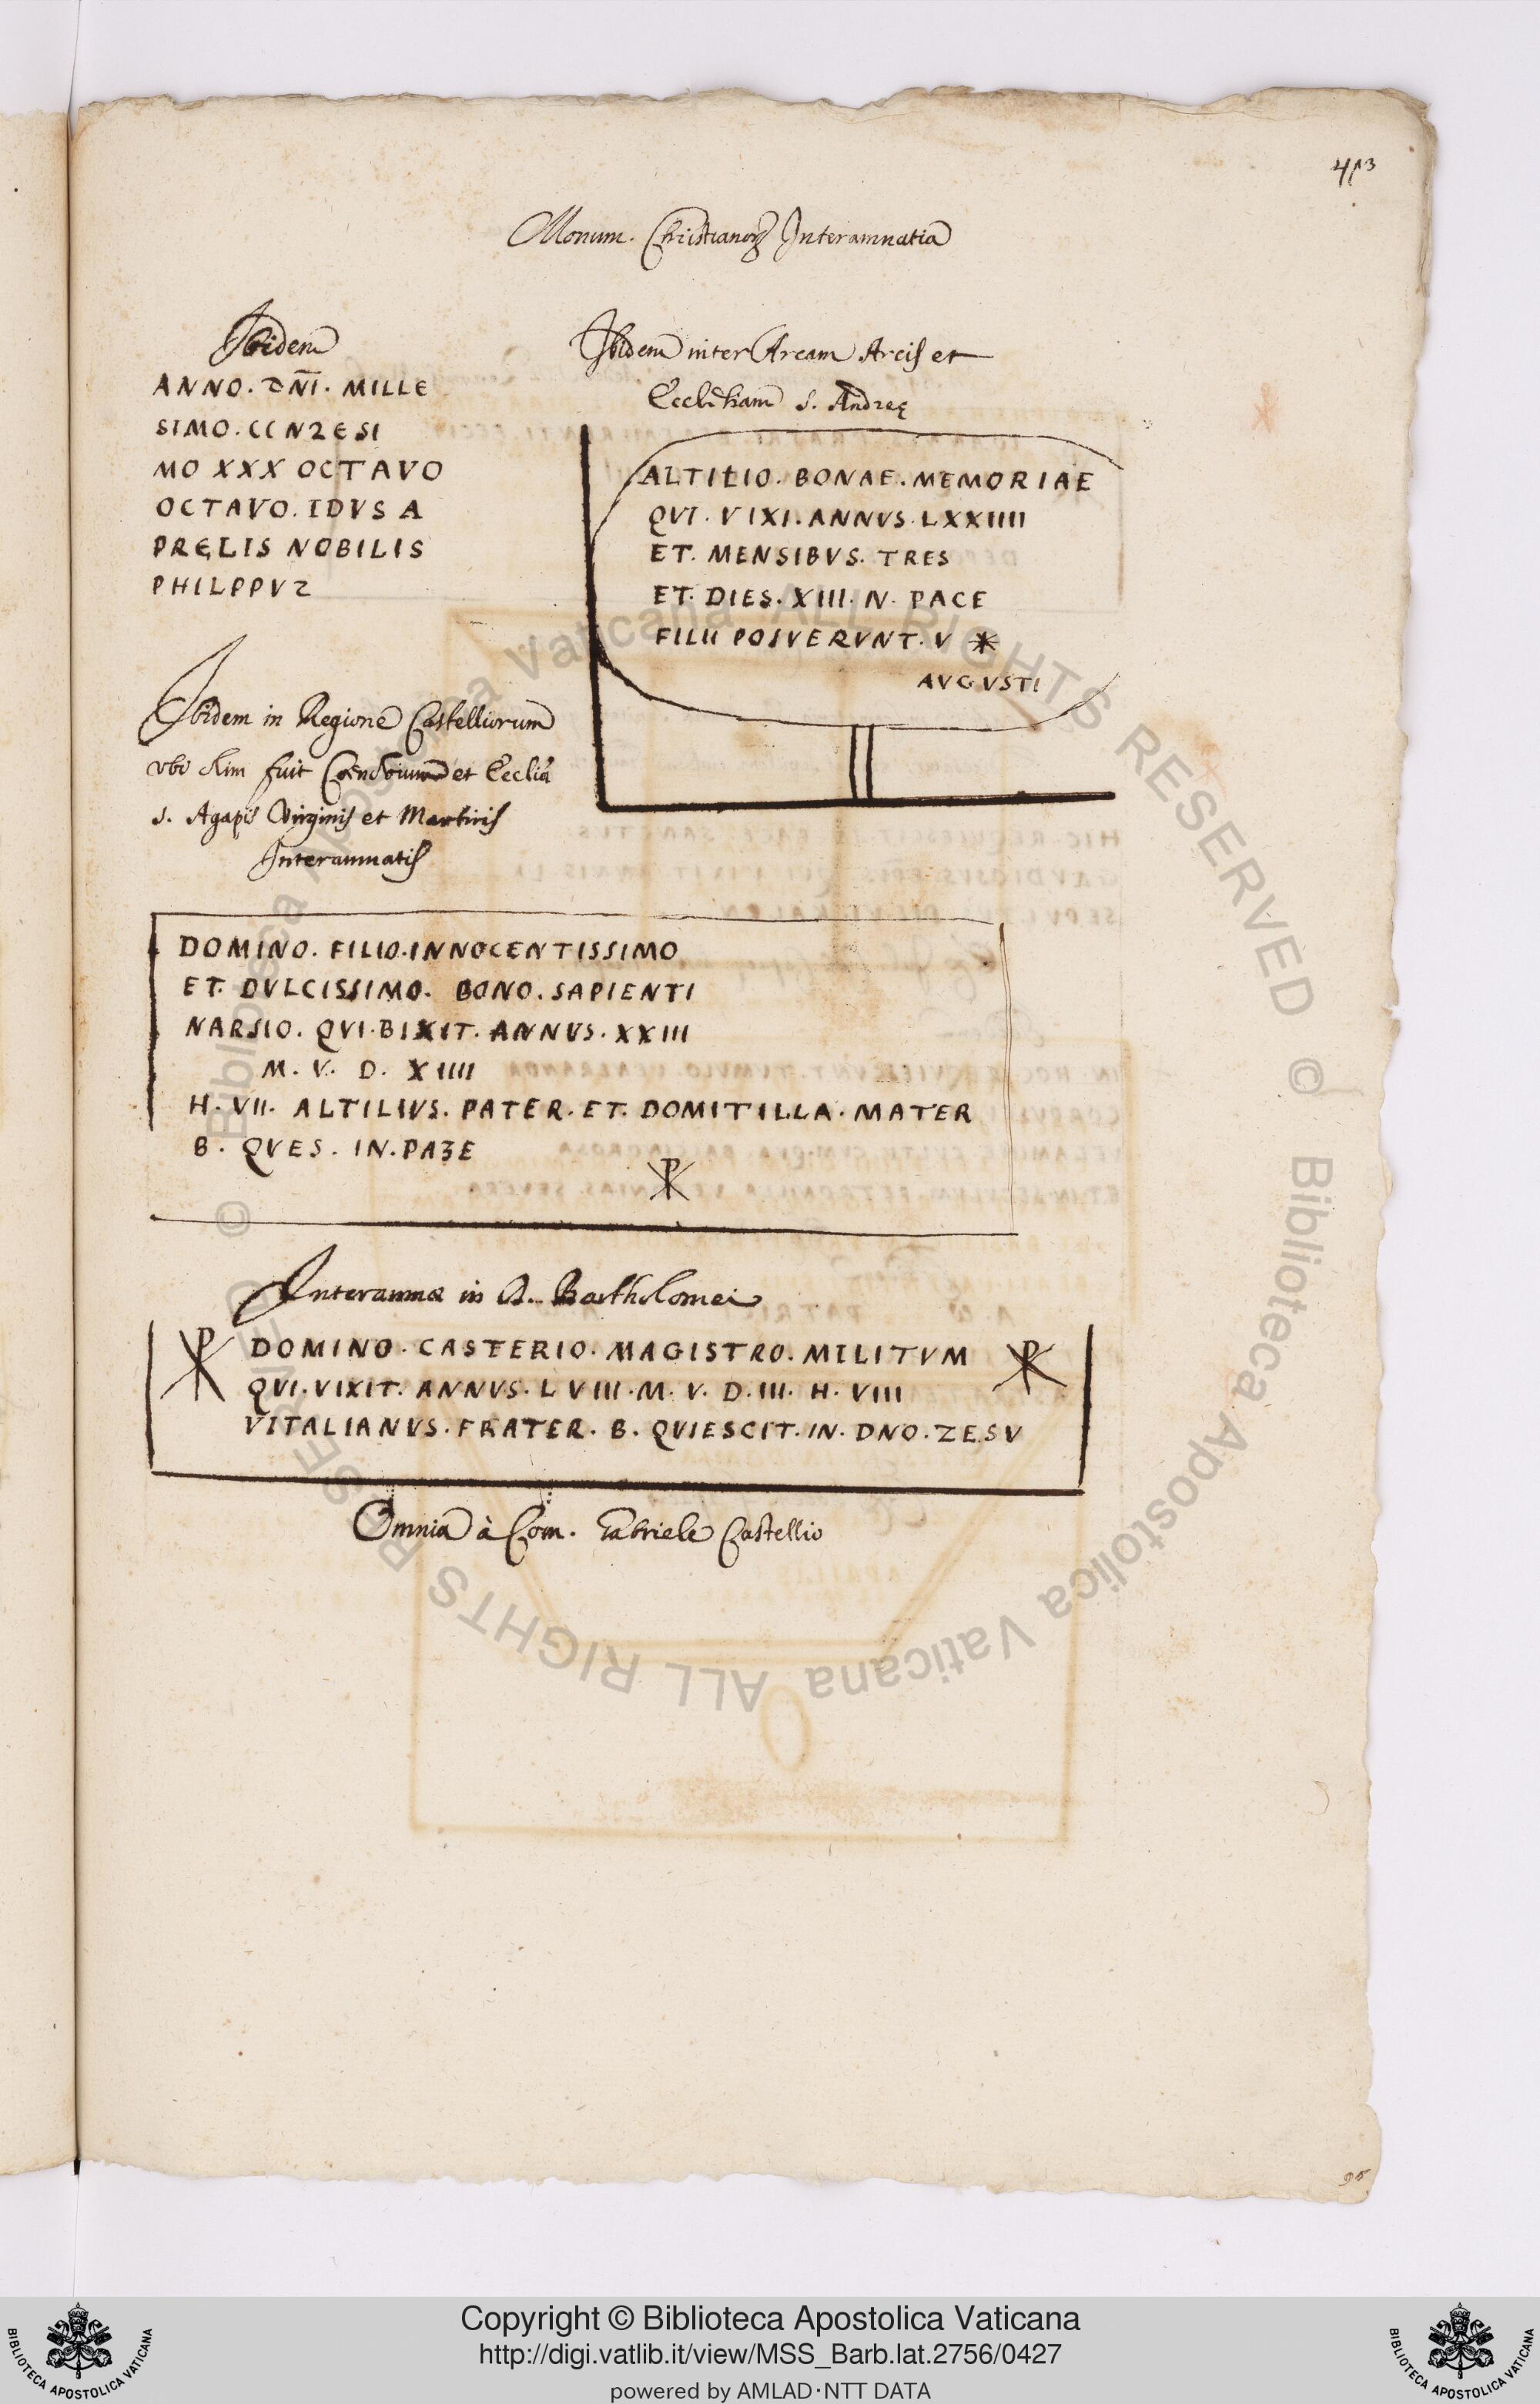 413
Monum. Christianoꝝ Interamnatia
Ibidem
ANNO. DNĪ. MILLE
SIMO. CCN2ESI
MO XXX OCTAVO
OCTAVO. IDVS A
PRĘLIS NOBILIS
PHILPPVZ
Ibidem inter Aream Arcis et
Eccl̃iam S. Andreę
ALTILIO. BONAE. MEMORIAE
QVI. VIXI. ANNVS. LXXIIII
ET. MENSIBVS. TRES
ET. DIES. XIII. N. PACE
FILII POSVERVNT. V
AVGVSTI
Ibidem in Regione Castelliorum
vbi olim fuit Coenobium et Ecclia
S. Agapis Virginis et Martiris
Interamnatis
DOMINO. FILIO. INNOCENTISSIMO
ET. DVLCISSIMO. BONO. SAPIENTI
NARSIO. QVI. BIXIT. ANNVS. XXIII
M. V. D. XIIII
H. VII. ALTILIVS. PATER. ET. DOMITILLA. MATER
B. QVES. IN. PAZE
☧
Interamnæ in Æ. Bartholomei
☧ DOMINO. CASTERIO. MAGISTRO. MILITVM ☧
QVI. VIXIT. ANNVS. LVIII. M. V. D. III. H. VIII
VITALIANVS. FRATER. B. QVIESCIT. IN. DNO. ZESV
Omnia à Com. Gabriele Castellio
© Biblioteca Apostolica Vaticana ALL RIGHTS RESERVED © Biblioteca Apostolica Vaticana ALL RIGHTS RESERVED
Copyright © Biblioteca Apostolica Vaticana
http://digi.vatlib.it/view/MSS_Barb.lat.2756/0427
powered by AMLAD·NTT DATA
BIBLIOTECA APOSTOLICA VATICANA
BIBLIOTECA APOSTOLICA VATICANA